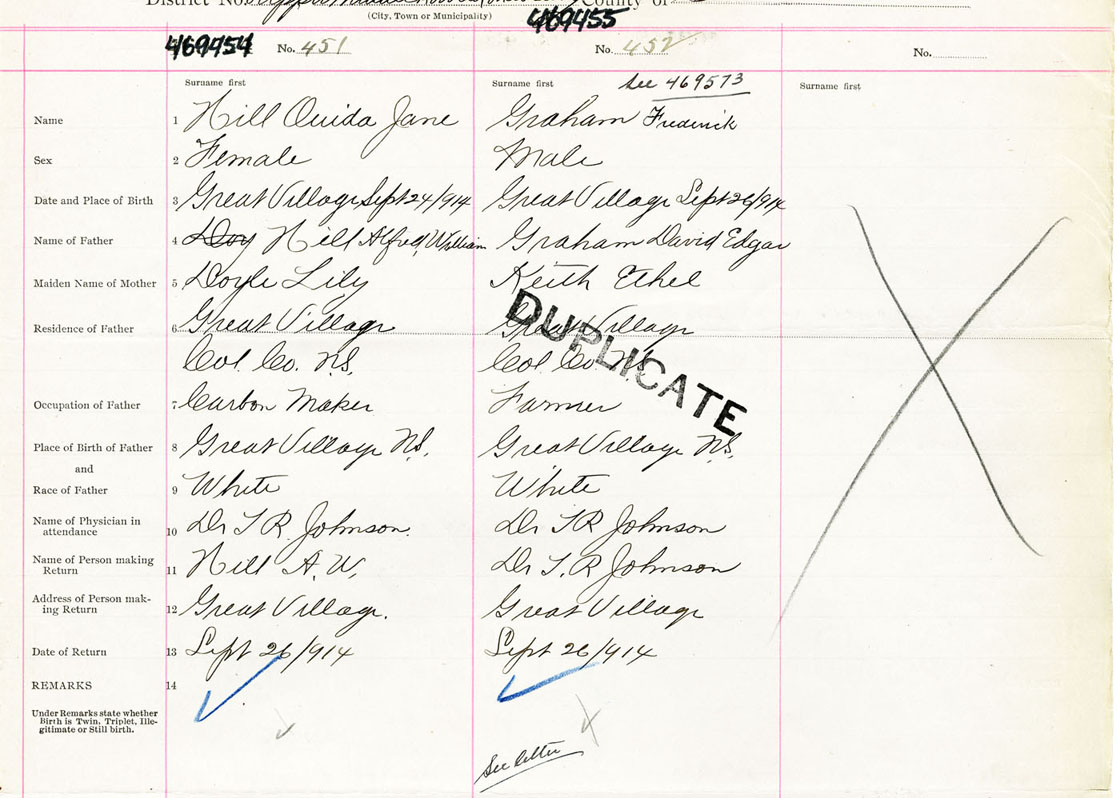 District No. County of
(City, Town or Municipality)
469454 No. 451 469455 No. 452 No.
Surname first Surname first See 469573 Surname first
Name 1 Hill Ouida Jane Graham Frederick
Sex 2 Female Male
Date and Place of Birth 3 Great Village Sept 24/914 Great Village Sept 26/914
Name of Father 4 Doy Hill Alfred William Graham David Edgar
Maiden Name of Mother 5 Doyle Lily Keith Ethel
Residence of Father 6 Great Village Great Village
Col. Co. N.S. Col Co N.S.
DUPLICATE
Occupation of Father 7 Carbon Maker Farmer
Place of Birth of Father 8 Great Village N.S. Great Village N.S.
and
Race of Father 9 White White
Name of Physician in
attendance 10 Dr T R Johnson. Dr T R Johnson
Name of Person making
Return 11 Hill A. W. Dr T. R Johnson
Address of Person mak-
ing Return 12 Great Village. Great Village
Date of Return 13 Sept 26/914 Sept 26/914
REMARKS 14
Under Remarks state whether
Birth is Twin, Triplet, Ille-
gitimate or Still birth.
See letter